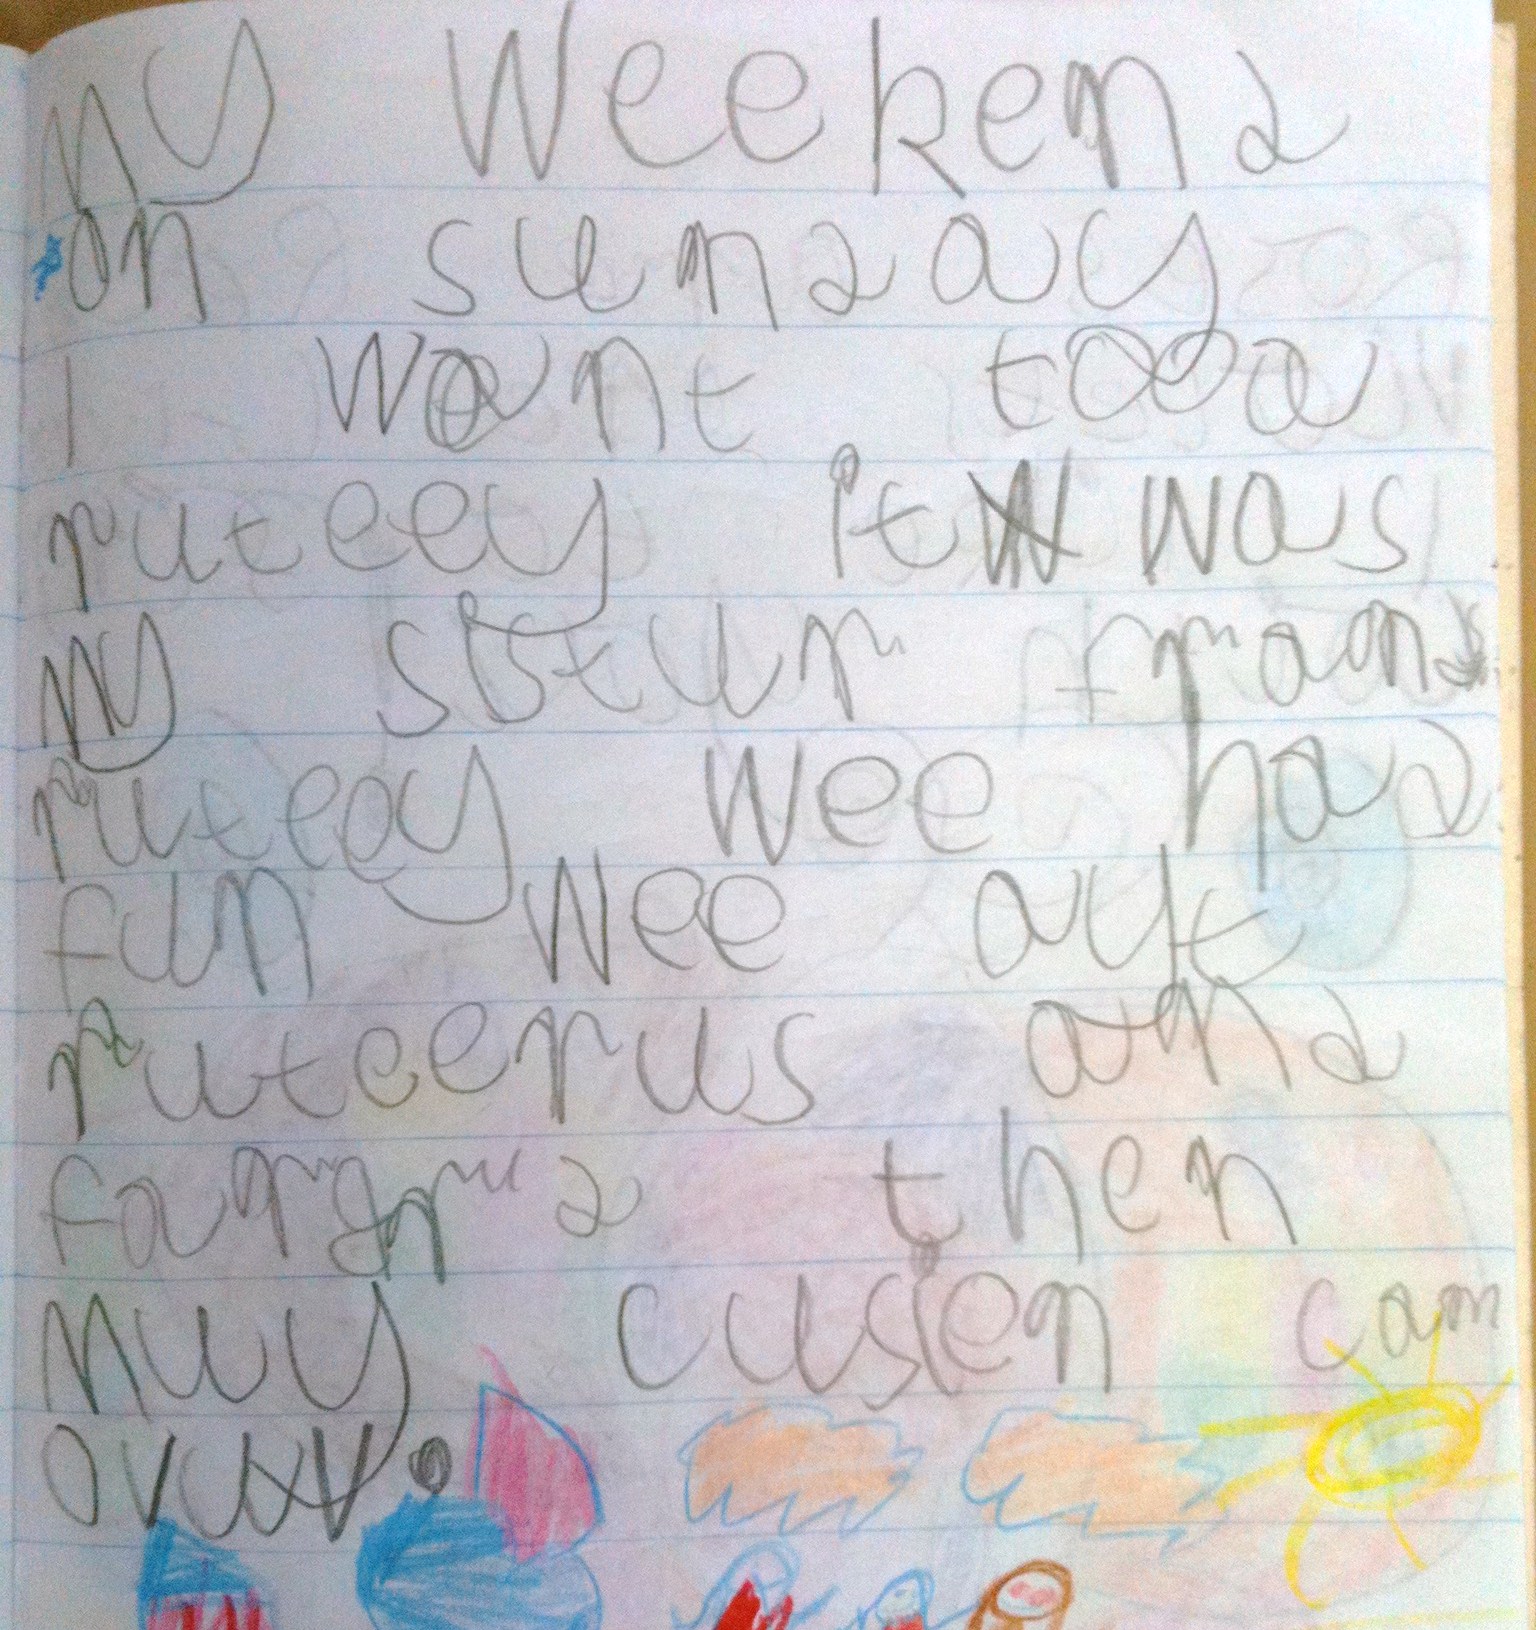 My Weekend
on sunday
I want tooa
ruteey it was
my sistur frans
ruteey wee had
fun wee ayt
ruteerus and
fargrd then
muy cusien cam
ovur.